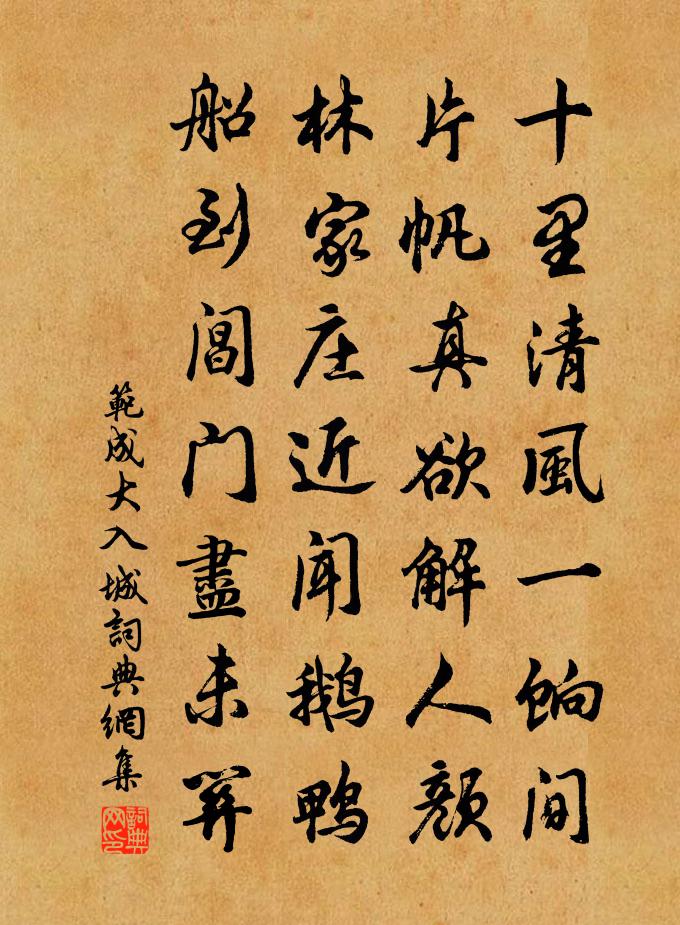 十里清風一餉間
片帆真欲解人顏
林家庄近聞鵝鴨
船到閶門盡未關
範成大入城詞典網集
詞典网印